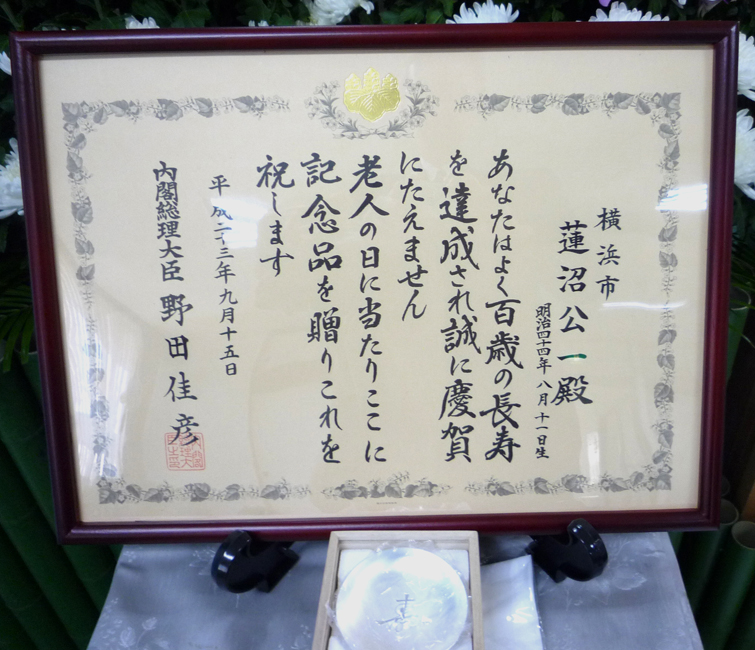 横浜市
蓮沼公一殿
明治四十四年八月十一日生
あなたはよく百歳の長寿
を達成され誠に慶賀
にたえません
老人の日に当たりここに
記念品を贈りこれを
祝します
平成二十三年九月十五日
内閣総理大臣 野田佳彦
寿